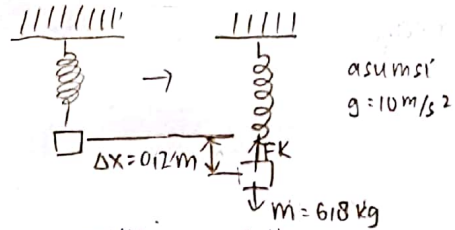 asumsi
g = 10 m/s²
Δx = 0,2 m
FK
m = 6,8 kg